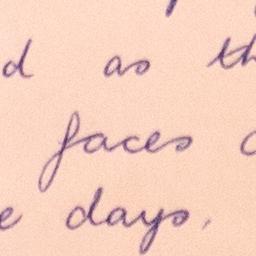 d as th
faces
e days,